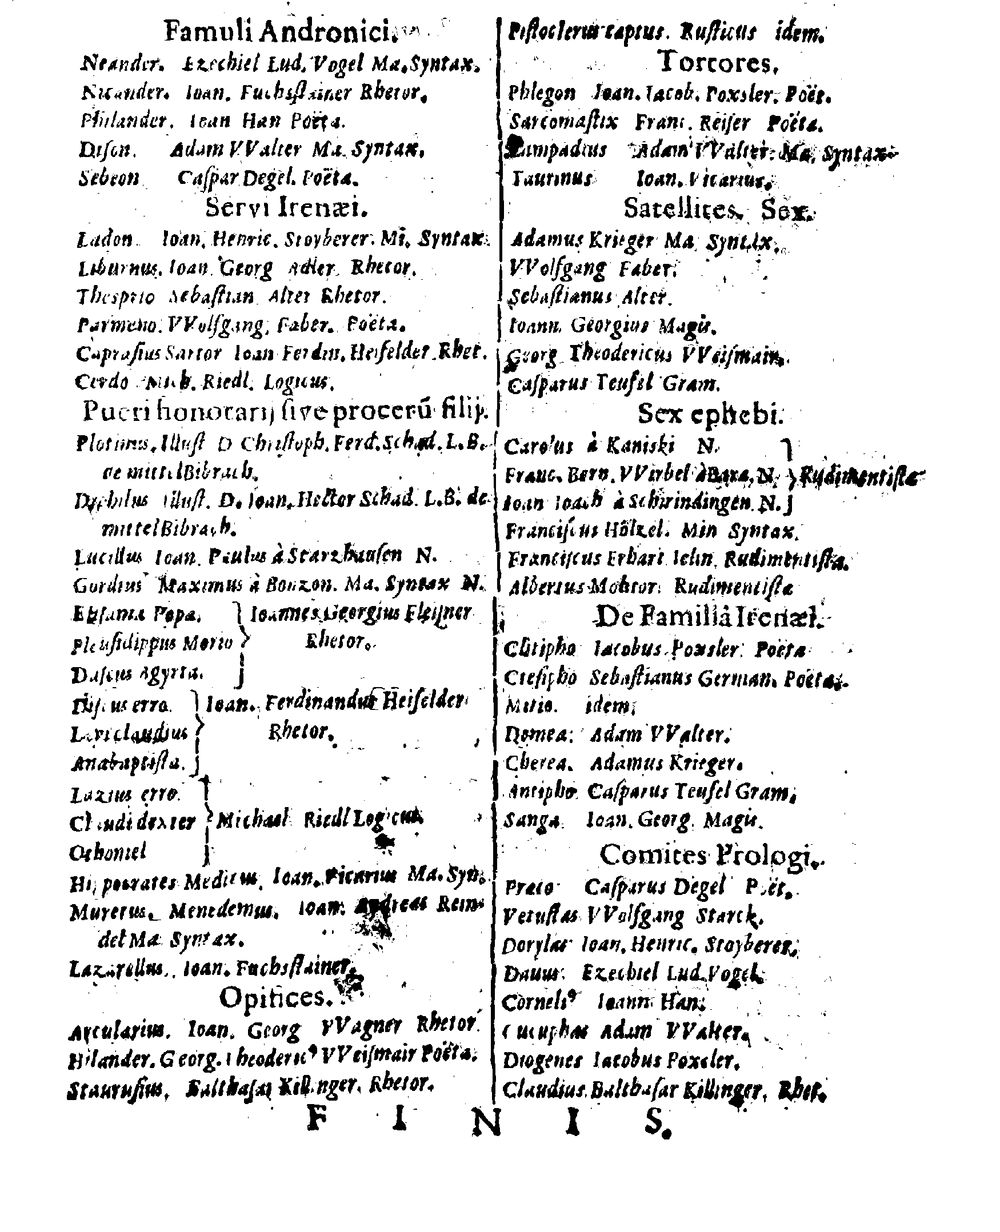 Famuli Andronici.
Neander. Ezechiel Lud. Vogel Ma. Syntax.
Nicander. Ioan. Fuchsſtainer Rhetor.
Philander. Ioan Han Poëta.
Diſon. Adam VValter Ma. Syntax.
Sebeon Caſpar Degel. Poëta.
Servi Irenæi.
Ladon. Ioan. Henric. Stoyberer. Mi. Syntax.
Liburnus. Ioan Georg Adler Rhetor.
Thesprio Sebaſtian Alter Rhetor.
Parmeno. VVolfgang. Faber. Poëta.
Capraſius Sartor Ioan Ferdin. Heiſelder Rhet.
Cerdo Mich. Riedl. Logicus.
Pueri honorarij ſive procerũ filij.
Plotinus. Illuſt D Chriſtoph. Ferd. Schad. L. B.
de mittelBibrach.
Illuſt. D. Ioan. Hector Schad. L. B. de
mittelBibrach.
Lucillus Ioan. Paulus à Starzhauſen N.
Gordius Maximus à Bouzon. Ma. Syntax N.
Popa. } Ioannes Georgius Fleiſner
Pleuſidippus Morio } Rhetor.
Agyrta. }
erro. } Ioan. Ferdinandus Heiſelder
Rhetor.
Anabaptiſta. }
Lazius erro. }
Claudi dexter } Michael Riedl Logicus
Othoniel }
Hippocrates Medicus. Ioan. Vicarius Ma. Syn.
Muretus. Menedemus. Ioan. Andreas Rein-
del Ma Syntax.
Lazarellus. Ioan. Fuchsſtainer.
Opifices.
Arcularius. Ioan. Georg VVagner Rhetor.
Hilander. Georg. Theoderic⁹ VVeiſmair Poëta.
Stauruſius. Balthaſar Killinger. Rhetor.
Piſtoclerus captus. Ruſticus idem.
Tortores.
Phlegon Ioan. Iacob. Poxsler. Poët.
Sarcomaſtix Franc. Reiſer Poëta.
Lampadius Adam VValter. Ma. Syntax.
Taurinus Ioan. Vicarius.
Satellites. Sex.
Adamus Krieger Ma Syntax.
VVolfgang Faber.
Sebaſtianus Alter.
Ioann. Georgius Magir.
Georg Theodericus VVeiſmair.
Caſparus Teufel Gram.
Sex ephebi.
Carolus à Kaniski N. }
Franc. Bern. VVirbel à Bara. N. } Rudimentiſtæ
Ioan Ioach à Schirindingen N. }
Franciſcus Hölzel. Min Syntax.
Franciſcus Erhart Rudimentiſta.
Albertus Rudimentiſta
De Familiâ Irenæi.
Clitipho Iacobus Poxsler. Poëta
Cteſipho Sebaſtianus German. Poëta.
Mitio. idem.
Demea. Adam VValter.
Cherea. Adamus Krieger.
Antipho Caſparus Teufel Gram.
Sanga Ioan. Georg. Magir.
Comites Prologi.
Caſparus Degel Poët.
Vetuſtas VVolfgang Starck.
Dorylas Ioan. Henric. Stoyberer.
Davus. Ezechiel Lud. Vogel.
Corneli⁹ Ioann. Han.
Cucuphas Adam VValter.
Diogenes Iacobus Poxsler.
Claudius Balthaſar Killinger. Rhet.
F I N I S.